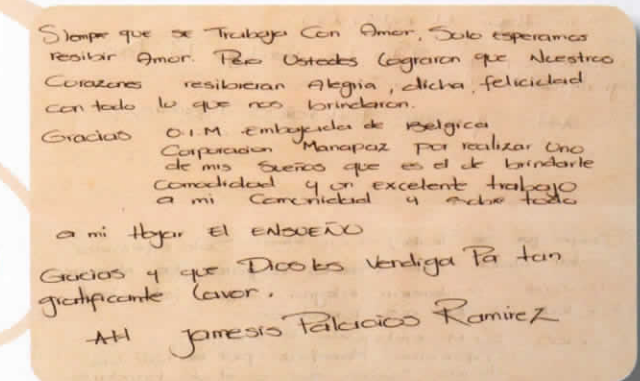 Siempre que se Trabaja Con Amor, Solo esperamos
resibir Amor. Pero Ustedes lograron que Nuestros
Corazones resibieran Alegria, dicha, felicidad
con todo lo que nos brindaron.
Gracias O.I.M. Embajada de Belgica
Corporacion Manapaz por realizar uno
de mis sueños que es el de brindarle
comodidad y un excelente trabajo
a mi Comunidad y sobre todo
a mi Hogar El ENSUEÑO
Gracias y que Dios les Vendiga Pa tan
gratificante lavor.
Att Jamesis Palacios Ramirez